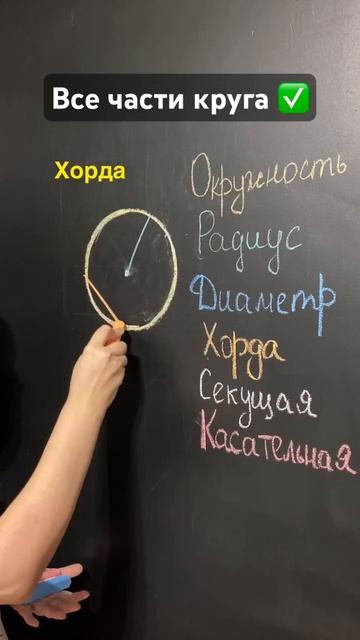 Все части круга ✅
Хорда
Окружность
Радиус
Диаметр
Хорда
Секущая
Касательная